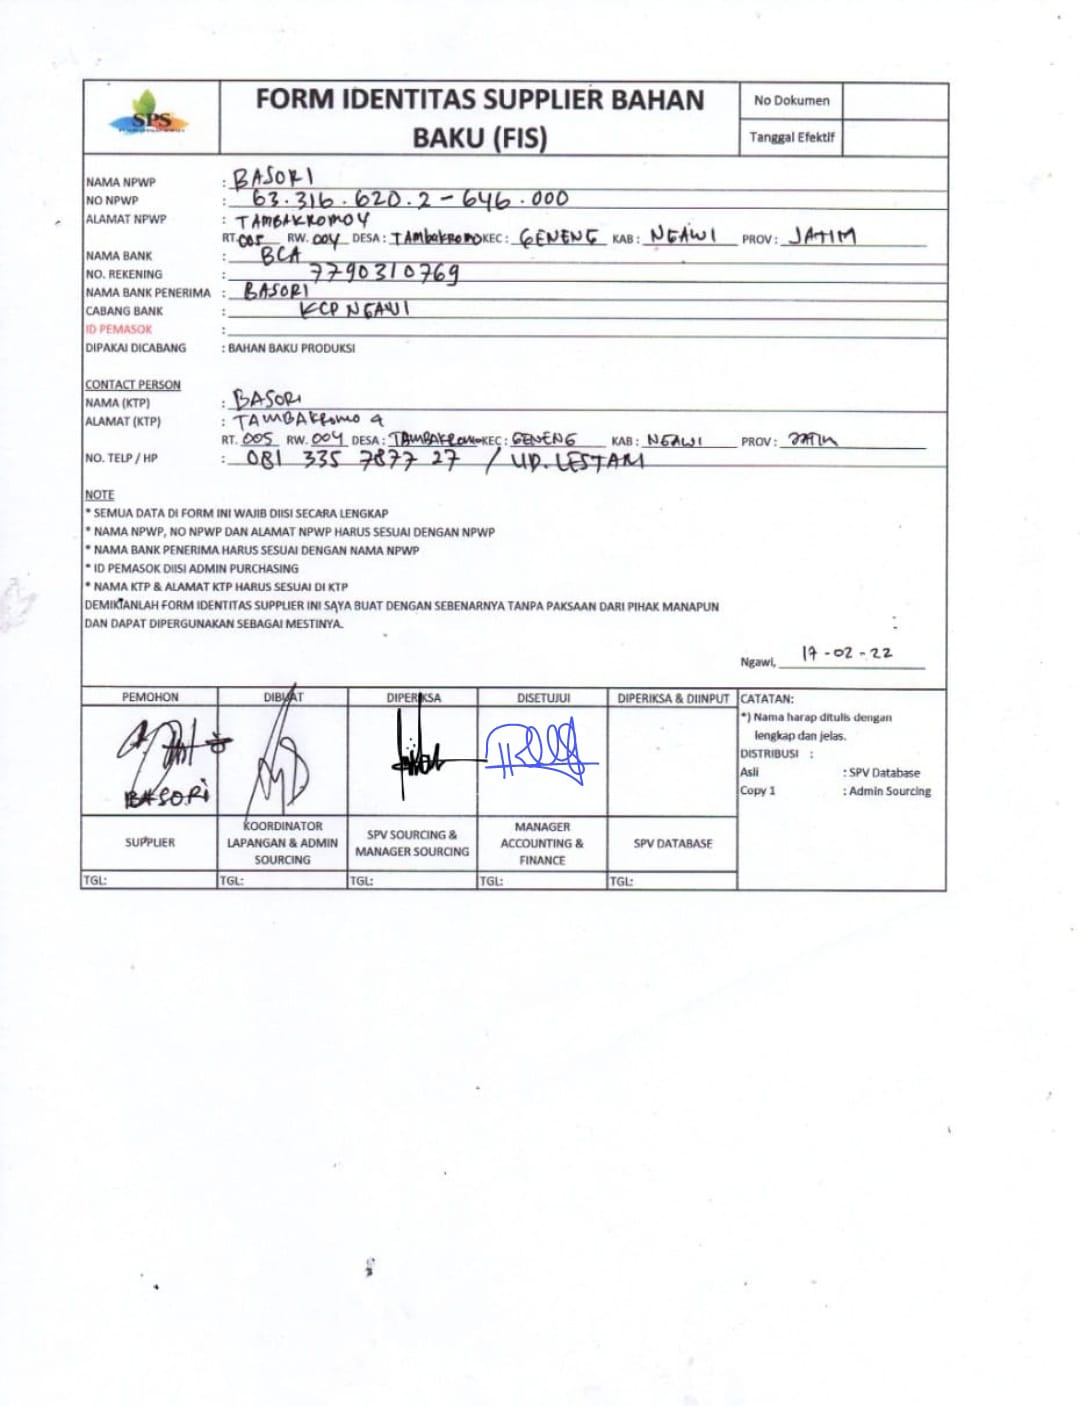 SPS
FORM IDENTITAS SUPPLIER BAHAN
BAKU (FIS)
No Dokumen
Tanggal Efektif
NAMA NPWP : BASORI
NO NPWP : 63.316.620.2-646.000
ALAMAT NPWP : TAMBAKROMO 4
RT. 005 RW. 004 DESA : TAMBAKROMO KEC : GENENG KAB : NGAWI PROV : JATIM
NAMA BANK : BCA
NO. REKENING : 7790310769
NAMA BANK PENERIMA : BASORI
CABANG BANK : KCP NGAWI
ID PEMASOK :
DIPAKAI DICABANG : BAHAN BAKU PRODUKSI
CONTACT PERSON
NAMA (KTP) : BASORI
ALAMAT (KTP) : TAMBAKROMO
RT. 005 RW. 004 DESA : TAMBAKROMO KEC : GENENG KAB : NGAWI PROV : JATIM
NO. TELP / HP : 081 335 7877 27 / UD. LESTARI
NOTE
* SEMUA DATA DI FORM INI WAJIB DIISI SECARA LENGKAP
* NAMA NPWP, NO NPWP DAN ALAMAT NPWP HARUS SESUAI DENGAN NPWP
* NAMA BANK PENERIMA HARUS SESUAI DENGAN NAMA NPWP
* ID PEMASOK DIISI ADMIN PURCHASING
* NAMA KTP & ALAMAT KTP HARUS SESUAI DI KTP
DEMIKIANLAH FORM IDENTITAS SUPPLIER INI SAYA BUAT DENGAN SEBENARNYA TANPA PAKSAAN DARI PIHAK MANAPUN
DAN DAPAT DIPERGUNAKAN SEBAGAI MESTINYA.
Ngawi, 17-02-22
PEMOHON DIBUAT DIPERIKSA DISETUJUI DIPERIKSA & DIINPUT CATATAN:
*) Nama harap ditulis dengan
lengkap dan jelas.
DISTRIBUSI :
Asli : SPV Database
Copy 1 : Admin Sourcing
BASORI
SUPPLIER
KOORDINATOR
LAPANGAN & ADMIN
SOURCING
SPV SOURCING &
MANAGER SOURCING
MANAGER
ACCOUNTING &
FINANCE
SPV DATABASE
TGL: TGL: TGL: TGL: TGL: